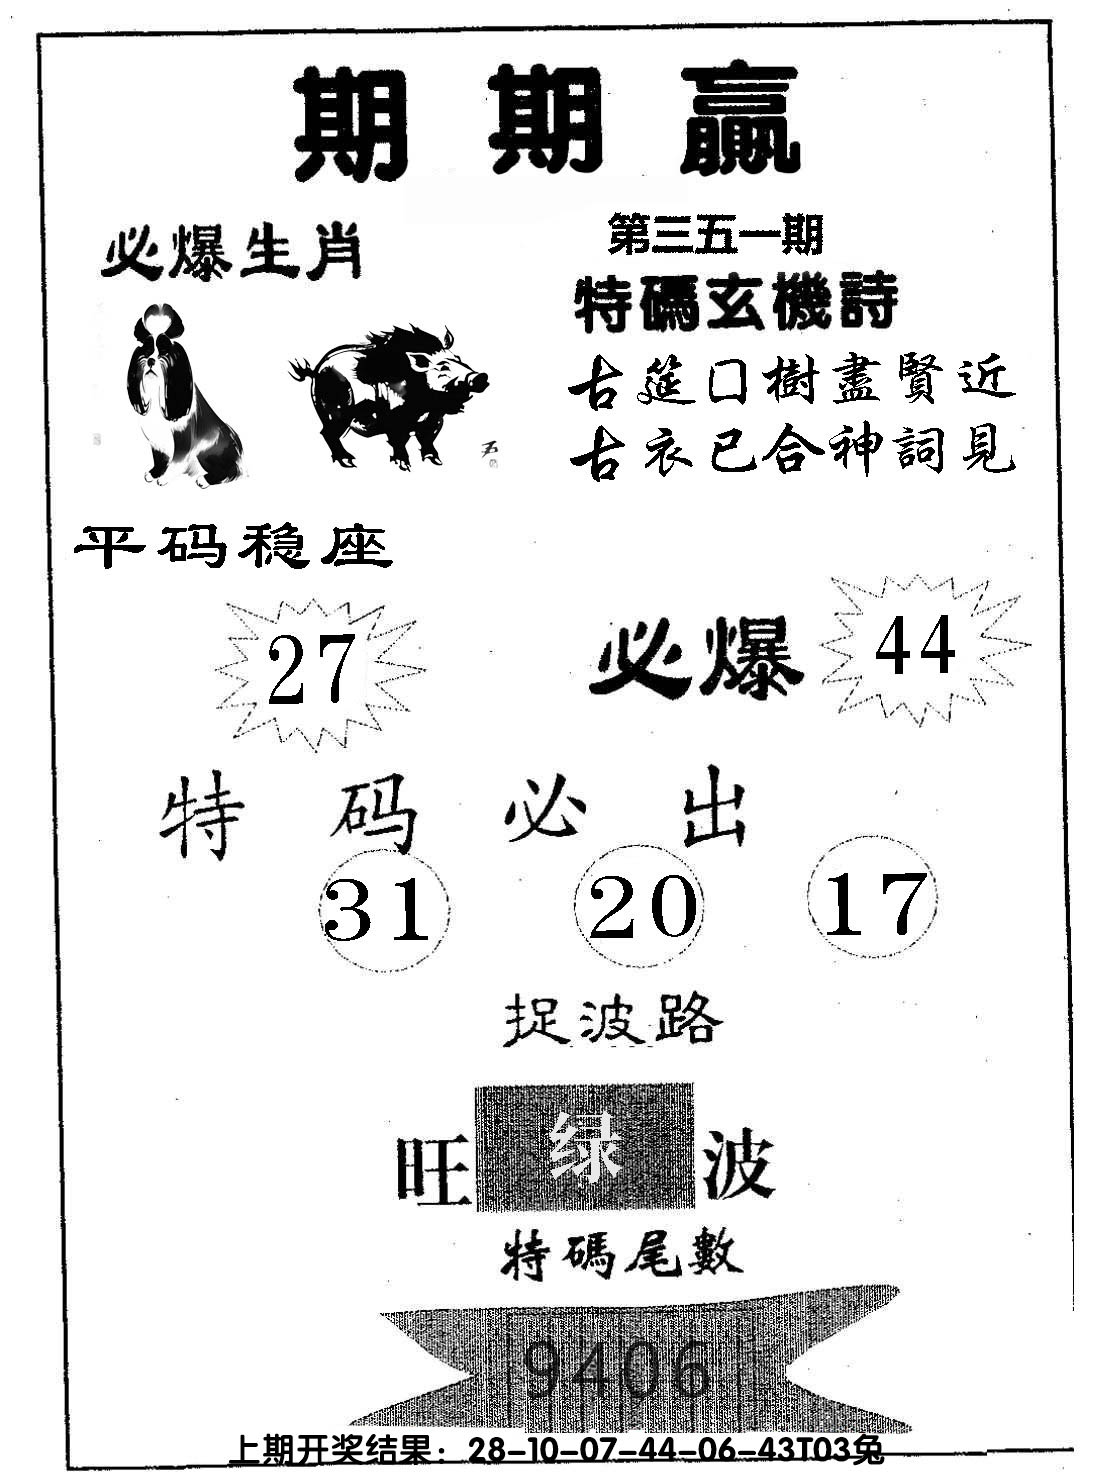 期期赢
必爆生肖
第三五一期
特碼玄機詩
古筵口樹盡賢近
古衣已合神詞見
五
平码稳座
27
必爆
44
特码必出
31 20 17
捉波路
旺绿波
特碼尾數
9406
上期开奖结果：28-10-07-44-06-43T03兔